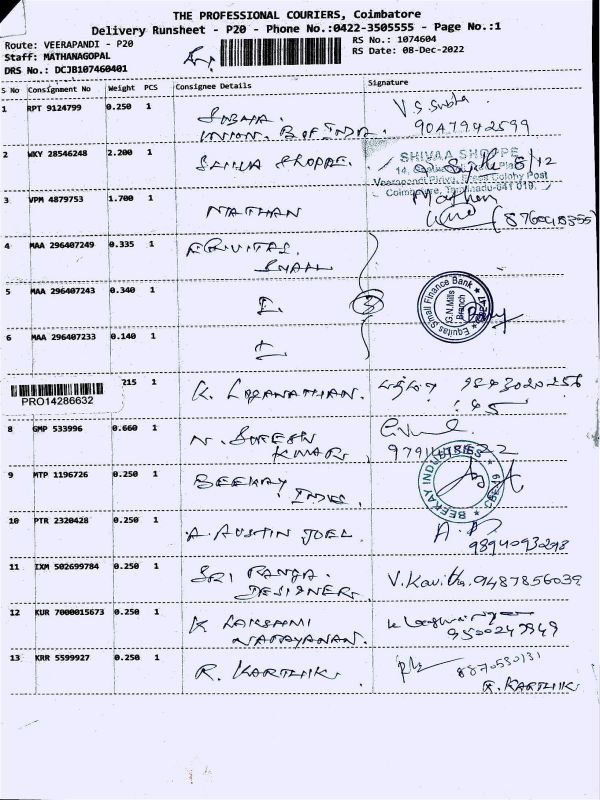 THE PROFESSIONAL COURIERS, Coimbatore
Delivery Runsheet - P20 - Phone No.:0422-3505555 - Page No.:1
Route: VEERAPANDI - P20
RS No.: 1074604
Staff: MATHANAGOPAL
RS Date: 08-Dec-2022
DRS No.: DCJB107460401
S No Consignment No Weight PCS Consignee Details Signature
1 RPT 9124799 0.250 1 SUBHA. V.S. Subha
UNION. B OF INDIA. 9047942599
2 WKY 28546248 2.200 1 SHIVA SHOPPE. 8/12
SHIVAA SHOPPE
Veerapandi Pirivu, Press Colony Post
Coimbatore, Tamilnadu-641 019.
3 VPM 4879753 1.700 1 NATHAN Mathan
4 MAA 296407249 0.335 1 EQUITAS.
SMALL
5 MAA 296407243 0.340 1 3
Equitas Small Finance Bank
G.N.Mills
Branch
6 MAA 296407233 0.140 1
215 1 K. LOGANATHAN.
PRO14286632
8 GMP 533996 0.660 1 N. SURESH
KUMAR
9 MTP 1196726 0.250 1 BEEKAY
INDUS.
BEEKAY INDUSTRIES
10 PTR 2320428 0.250 1 A. AUSTIN JOEL.
11 IXM 502699784 0.250 1 SRI RANGA. V. Kavitha. 9487856039
DESIGNER
12 KUR 7000015673 0.250 1 K LAKSHMI
NARAYANAN. 9500247949
13 KRR 5599927 0.250 1 R. KARTHIK 8870530131
R. KARTHIK